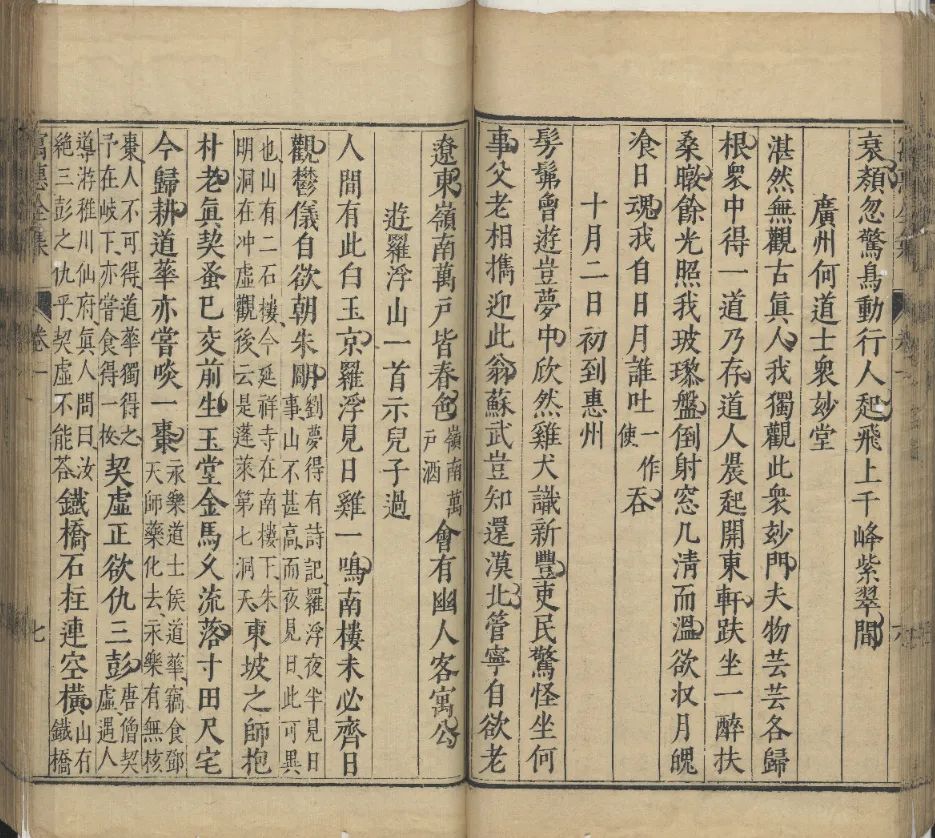 衰顏忽驚鳥動行人起飛上千峰紫翠間
廣州何道士衆妙堂
湛然無觀古眞人我獨觀此衆妙門夫物芸芸各歸
根衆中得一道乃存道人晨起開東軒趺坐一醉扶
桑暾餘光照我玻瓈盤倒射窓几清而溫欲収月魄
飡日魂我自日月誰吐一作使吞
十月二日初到惠州
髣髴曾遊豈夢中欣然雞犬識新豐吏民驚怪坐何
事父老相攜迎此翁蘇武豈知還漠北管寧自欲老
遼東嶺南萬戶皆春色嶺南萬戶酒會有幽人客寓公
遊羅浮山一首示兒子過
人間有此白玉京羅浮見日雞一鳴南樓未必齊日
觀鬱儀自欲朝朱明劉夢得有詩記羅浮夜半見日事山不甚高而夜見日此可異
也山有二石樓今延祥寺在南樓下朱明洞在冲虛觀後云是蓬萊第七洞天東坡之師抱
朴老眞契蚤已交前生玉堂金馬久流落寸田尺宅
今歸耕道華亦嘗啖一棗永樂道士侯道華竊食鄧天師藥化去永樂有無核
棗人不可得道華獨得之予在岐下亦嘗食得一枚契虛正欲仇三彭唐僧契虛遇人
導游稚川仙府眞人問曰汝絶三彭之仇乎契虛不能荅鐵橋石柱連空橫山有鐵橋
寓惠全集 卷一 七